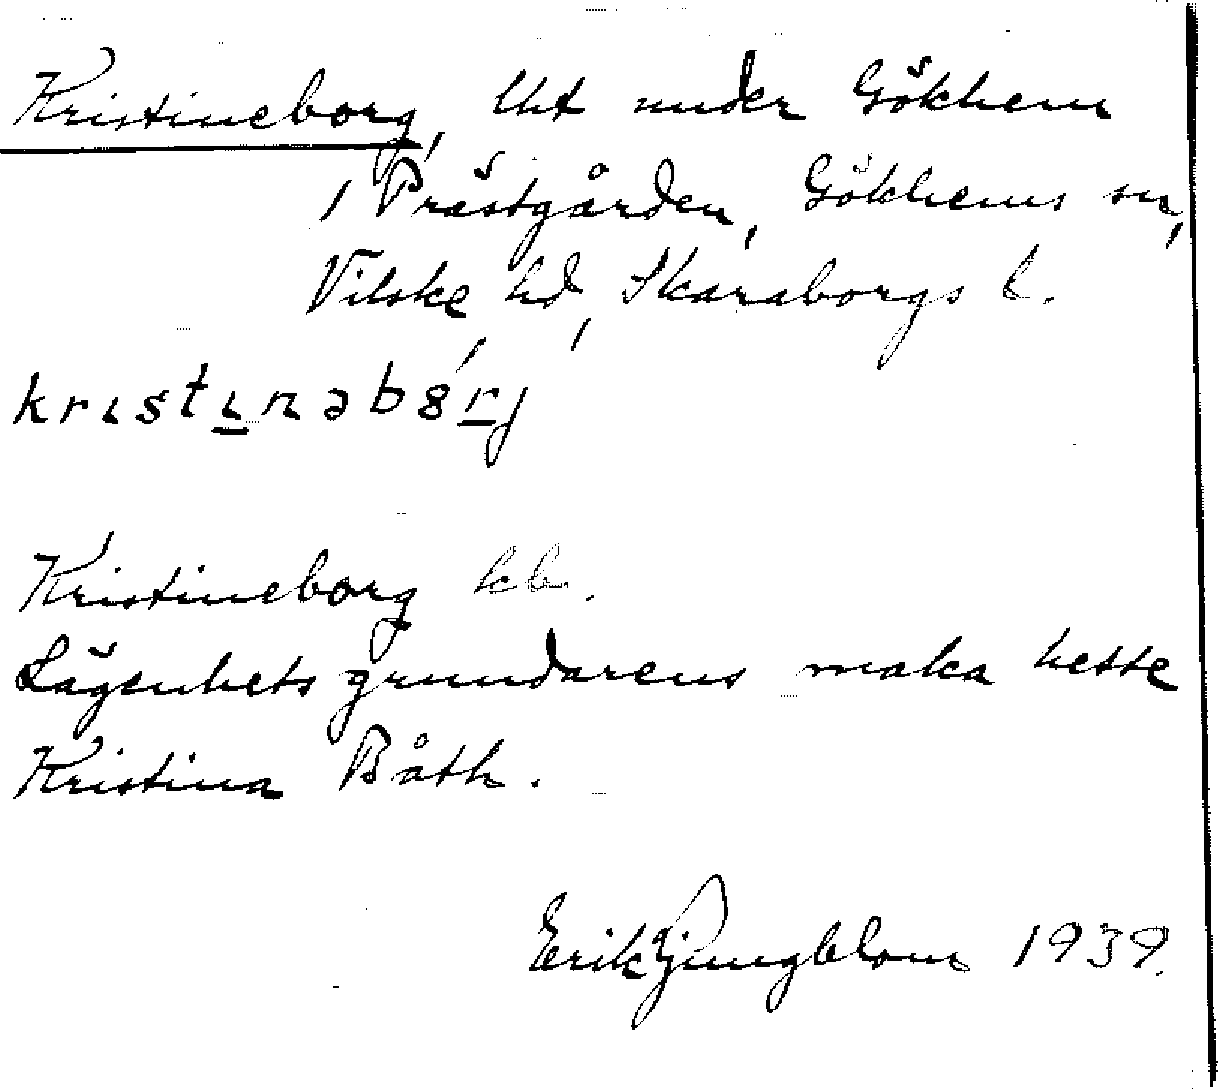 Kristineborg, lht under Gökhem
1 Prästgården, Gökhems sn,
Vilske hd, Skaraborgs l.
krıstı̲nəbȣ́r̲j
Kristineborg kb.
Lägenhetsgrundarens maka hette
Kristina Båth.
Erik Ljungblom 1939.